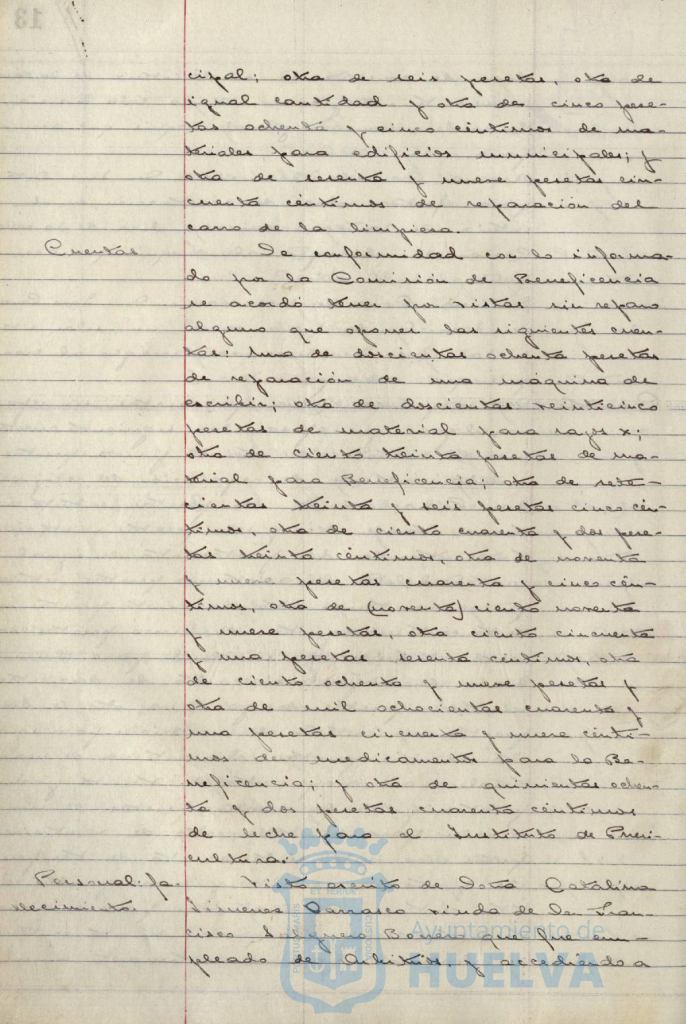 cipal; otra de seis pesetas, otra de
igual cantidad y otra de cinco pese-
tas ochenta y cinco céntimos de ma-
teriales para edificios municipales; y
otra de sesenta y nueve pesetas cin-
cuenta céntimos de reparación del
carro de la limpieza.
Cuentas
De conformidad con lo informa-
do por la Comisión de Beneficencia
se acordó tener por vistas sin reparo
alguno que oponer las siguientes cuen-
tas: una de doscientas ochenta pesetas
de reparación de una máquina de
escribir; otra de doscientas veinticinco
pesetas de material para rayos x;
otra de ciento treinta pesetas de ma-
terial para Beneficencia; otra de sete-
cientas treinta y seis pesetas cinco cén-
timos, otra de ciento cuarenta y dos pese-
tas treinta céntimos, otra de noventa
y nueve pesetas cuarenta y cinco cén-
timos, otra de (noventa) ciento noventa
y nueve pesetas, otra ciento cincuenta
y una pesetas sesenta céntimos, otra
de ciento ochenta y nueve pesetas y
otra de mil ochocientas cuarenta y
una pesetas cincuenta y nueve cénti-
mos de medicamentos para la Be-
neficencia; y otra de quinientas ochen-
ta y dos pesetas cuarenta céntimos
de leche para el Instituto de Pueri-
cultura.
Personal: fa-
llecimiento.
Visto escrito de Doña Catalina
Jimenez Carrasco viuda de Dn. Fran-
cisco Salguero que fue em-
pleado de Arbitrios, y accediendo a
Ayuntamiento de
HUELVA